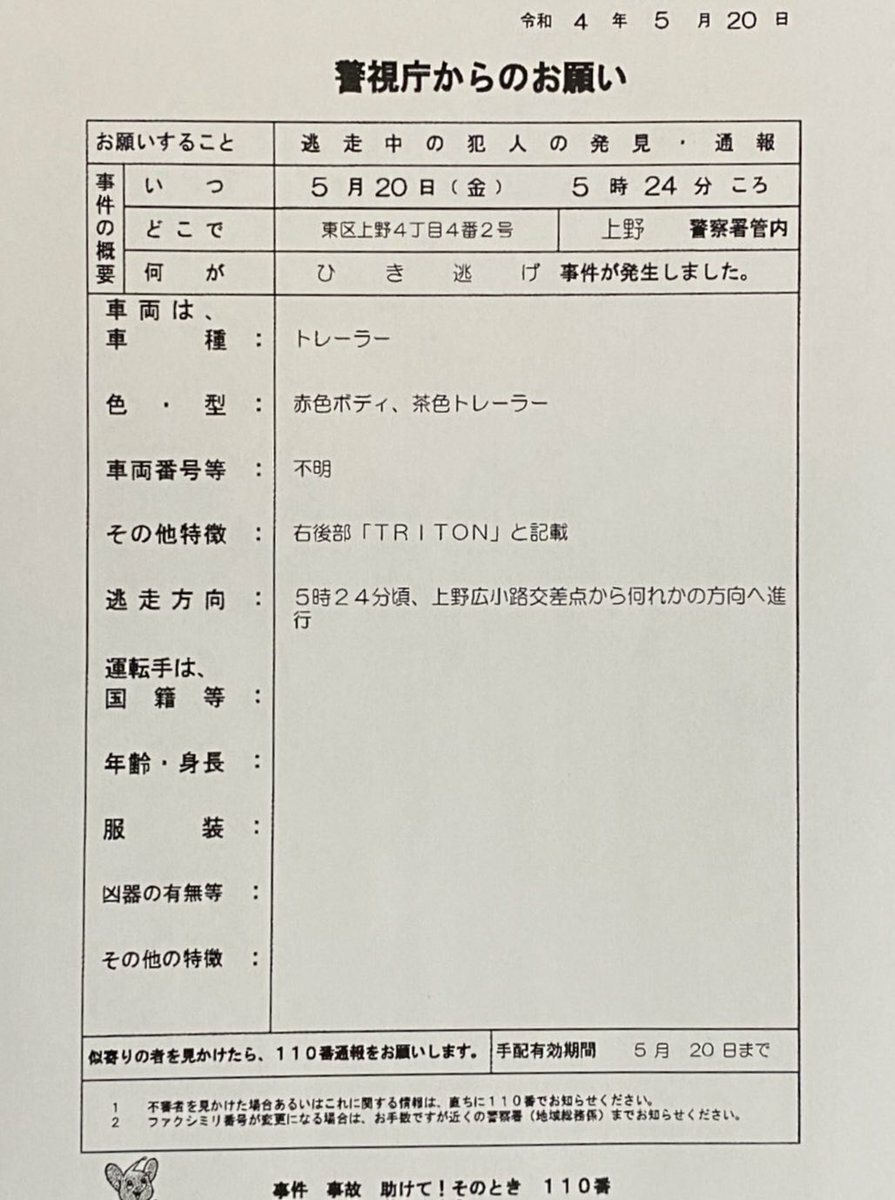 令和 4 年 5 月 20 日
警視庁からのお願い
お願いすること 逃走中の犯人の発見・通報
事件の概要
いつ 5 月 20 日(金) 5 時 24 分 ころ
どこで 東区上野4丁目4番2号 上野 警察署管内
何が ひき逃げ 事件が発生しました。
車両は、
車種： トレーラー
色・型： 赤色ボディ、茶色トレーラー
車両番号等： 不明
その他特徴： 右後部「TRITON」と記載
逃走方向： 5時24分頃、上野広小路交差点から何れかの方向へ進
行
運転手は、
国籍等：
年齢・身長：
服装：
凶器の有無等：
その他の特徴：
似寄りの者を見かけたら、110番通報をお願いします。 手配有効期間 5 月 20 日まで
1 不審者を見かけた場合あるいはこれに関する情報は、直ちに110番でお知らせください。
2 ファクシミリ番号が変更になる場合は、お手数ですが近くの警察署（地域総務係）までお知らせください。
事件 事故 助けて！そのとき 110番